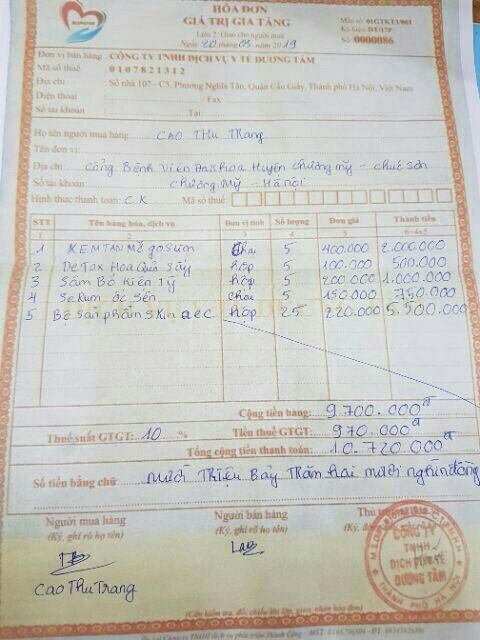 HÓA ĐƠN
GIÁ TRỊ GIA TĂNG
Liên 2: Giao cho người mua
Ngày 20 tháng 03 năm 2019
Mẫu số: 01GTKT3/001
Ký hiệu: DT/17P
Số: 0000086
Đơn vị bán hàng: CÔNG TY TNHH DỊCH VỤ Y TẾ DƯƠNG TÂM
Mã số thuế: 0107821312
Địa chỉ: Số nhà 107 - C5, Phường Nghĩa Tân, Quận Cầu Giấy, Thành phố Hà Nội, Việt Nam
Điện thoại: Fax
Số tài khoản: Tại
Họ tên người mua hàng: CAO Thu Trang
Tên đơn vị:
Địa chỉ: Cổng Bệnh Viện Đa khoa Huyện Chương Mỹ - Chúc Sơn
Số tài khoản: Chương Mỹ - Hà Nội
Hình thức thanh toán: C.K Mã số thuế:
STT Tên hàng hóa, dịch vụ Đơn vị tính Số lượng Đơn giá Thành tiền
1 2 3 4 5 6=4x5
1 KEM TAN Mỡ gosum chai 5 400.000 2.000.000
2 DeTox Hoa Quả Sấy hộp 5 100.000 500.000
3 Sâm Bó Kiên Tý hộp 5 200.000 1.000.000
4 SeRum ốc sên chai 5 150.000 750.000
5 Bộ sản phẩm Skin aec hộp 25 220.000 5.500.000
Cộng tiền hàng: 9.700.000đ
Thuế suất GTGT: 10 % Tiền thuế GTGT: 970.000đ
Tổng cộng tiền thanh toán: 10.720.000đ
Số tiền bằng chữ: Mười Triệu Bảy Trăm hai mươi nghìn đồng
Người mua hàng
(Ký, ghi rõ họ tên)
Người bán hàng
(Ký, ghi rõ họ tên)
Thủ
(Ký, đóng
CÔNG TY
TNHH
DỊCH VỤ Y TẾ
DƯƠNG TÂM
Cao Thu Trang
(Cần kiểm tra, đối chiếu khi lập, giao, nhận hóa đơn)